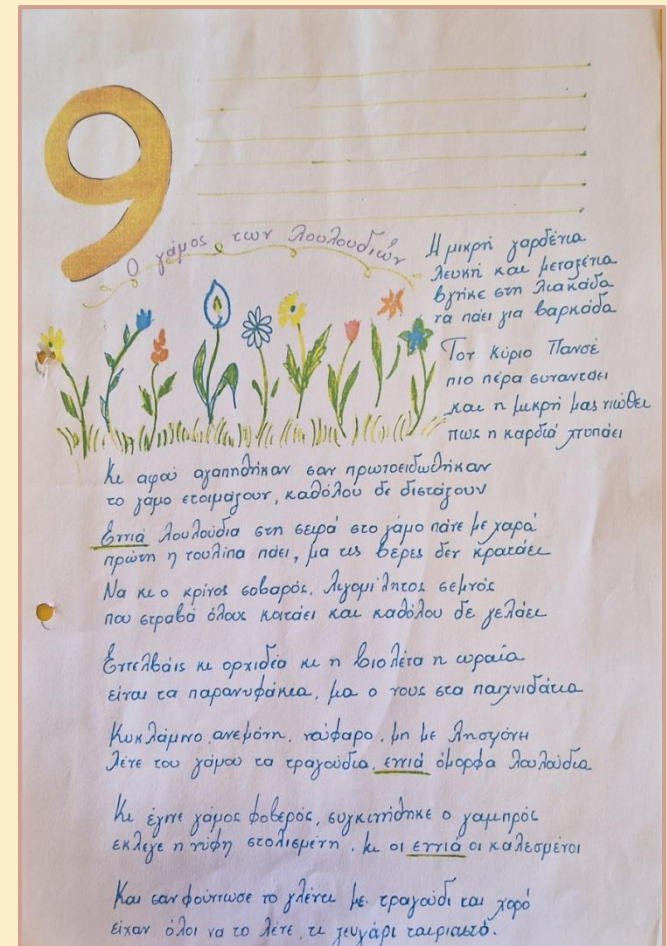 9
Ο γάμος των λουλουδιών
Η μικρή γαρδένια
λευκή και μεταξένια
βγήκε στη λιακάδα
να πάει για βαρκάδα
Τον κύριο Πανσέ
πιο πέρα συναντάει
και η μικρή μας νιώθει
πως η καρδιά χτυπάει
Κι αφού αγαπηθήκαν σαν πρωτοειδωθήκαν
το γάμο ετοιμάζουν, καθόλου δε διστάζουν
Εννιά λουλούδια στη σειρά στο γάμο πάνε με χαρά
πρώτη η τουλίπα πάει, μα τις βέρες δεν κρατάει
Να κι ο κρίνος σοβαρός, λιγομίλητος σεμνός
που στραβά όλους κοιτάει και καθόλου δε γελάει
Εντελβάις κι ορχιδέα κι η βιολέτα η ωραία
είναι τα παρανυφάκια, μα ο νους στα παιχνιδάκια
Κυκλάμινο, ανεμώνη, νούφαρο, μη με λησμόνει
λένε του γάμου τα τραγούδια, εννιά όμορφα λουλούδια
Κι έγινε γάμος φοβερός, συγκινήθηκε ο γαμπρός
έκλεγε η νύφη στολισμένη, κι οι εννιά οι καλεσμένοι
Και σαν φούντωσε το γλέντι με τραγούδι και χορό
είχαν όλοι να το λένε, τι ζευγάρι ταιριαστό.